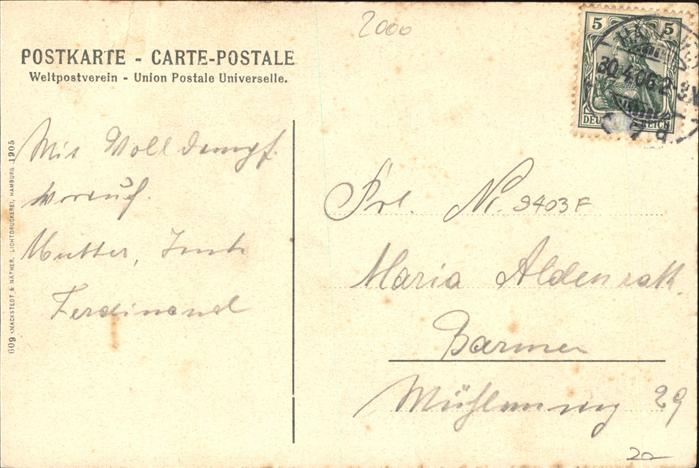 2000
POSTKARTE - CARTE-POSTALE
Weltpostverein - Union Postale Universelle.
Mit Volldampf
vorauf.
Mutter,
Ferdinand
609 KNACKSTEDT & NÄTHER, LICHTDRUCKEREI, HAMBURG 1905
5 5
HANNOVER
30.4.06.2-3N
DEUTSCHES REICH
Frl. N. 9403F
Maria Aldenrath.
Barmen
29
20